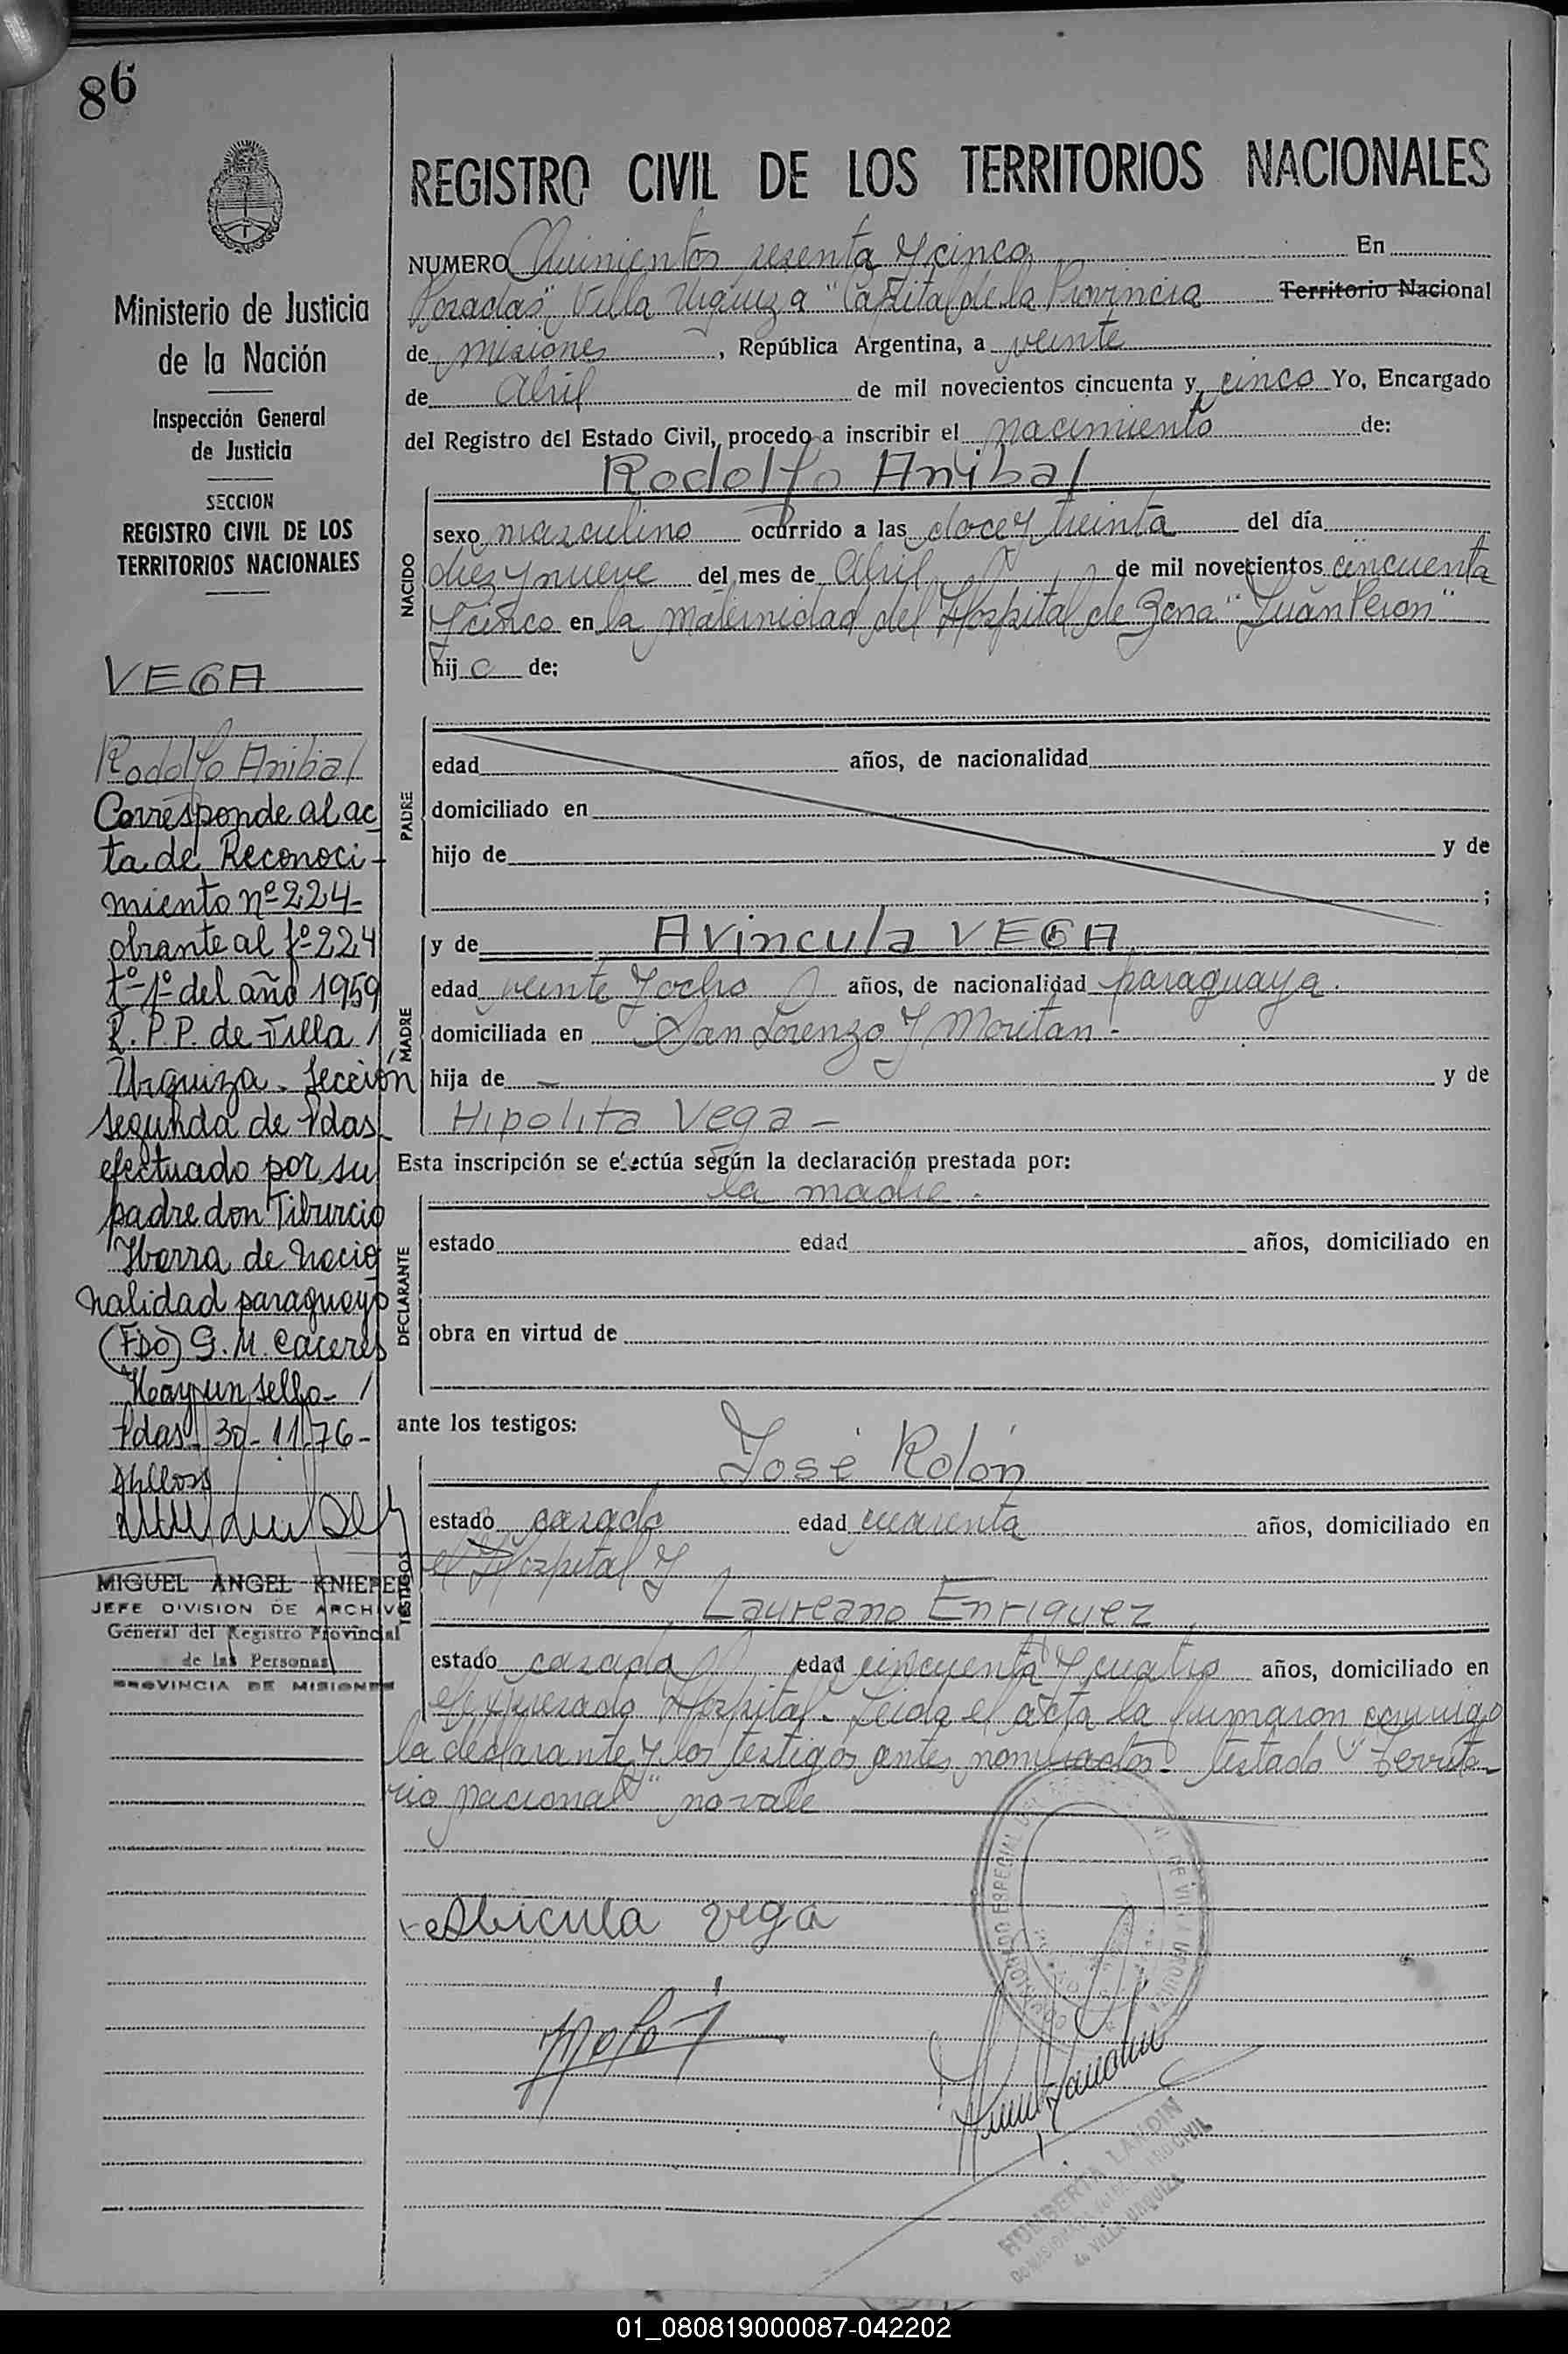 86
REGISTRO CIVIL DE LOS TERRITORIOS NACIONALES
NUMERO Quinientos sesenta y cinco En
Posadas "Villa Urquiza" Capital de la Provincia Territorio Nacional
de misiones, República Argentina, a veinte
de abril de mil novecientos cincuenta y cinco Yo, Encargado
del Registro del Estado Civil, procedo a inscribir el nacimiento de:
Rodolfo Anibal
NACIDO
sexo masculino ocurrido a las doce y treinta del día
diez y nueve del mes de abril de mil novecientos cincuenta
y cinco en la maternidad del Hospital de Zona "Juan Peron"
hij o de;
PADRE
edad años, de nacionalidad
domiciliado en
hijo de y de
;
MADRE
y de Avincula VEGA
edad veinte y ocho años, de nacionalidad paraguaya.
domiciliada en San Lorenzo y Moritan -
hija de — y de
Hipolita Vega —
Esta inscripción se efectúa según la declaración prestada por:
la madre.
DECLARANTE
estado edad años, domiciliado en
obra en virtud de
ante los testigos:
José Rolón
TESTIGOS
estado casado edad cuarenta años, domiciliado en
el Hospital y
Laureano Enriquez
estado casado edad cincuenta y cuatro años, domiciliado en
el expresado Hospital. Leida el acta la firmaron conmigo
la declarante y los testigos antes nombrados - testado "Territo-
rio nacional" no vale
Abicula Vega
HUMBERTO LANDIN
de VILLA URQUIZA
Ministerio de Justicia
de la Nación
Inspección General
de Justicia
SECCION
REGISTRO CIVIL DE LOS
TERRITORIOS NACIONALES
VEGA
Rodolfo Anibal
Corresponde al ac
ta de Reconoci-
miento nº 224-
obrante al fº 224
tº 1º del año 1959
R. P. P. de Villa
Urquiza - Sección
segunda de Pdas.
efectuado por su
padre don Tiburcio
Ibarra de nacio
nalidad paraguayo
(FDO) G. M. Caceres
Hay un sello -
Pdas 30-11-76-
MIGUEL ANGEL KNIEPER
JEFE DIVISION DE ARCHIVO
General del Registro Provincial
de las Personas
PROVINCIA DE MISIONES
01_080819000087-042202